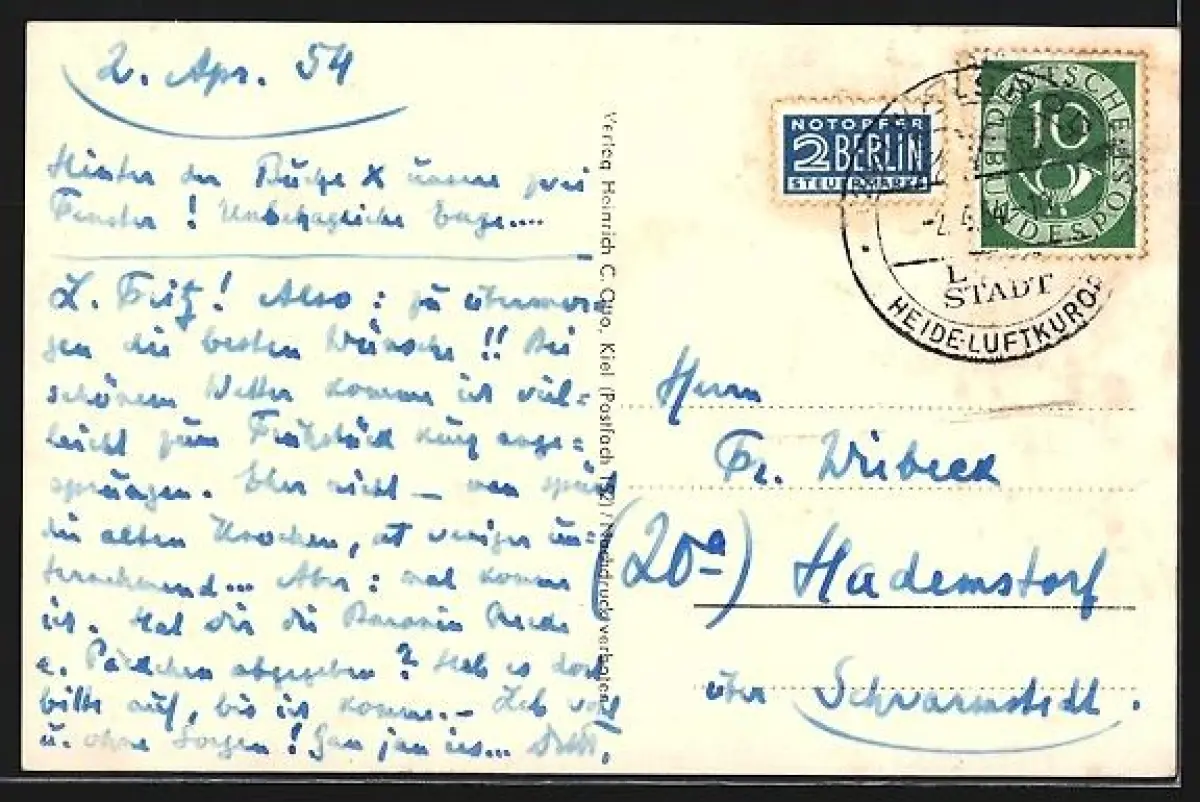 2. Apr. 54
Hinter der Buche x unsere zwei
Fenster! Unbehagliche Enge....
L. Fritz! Also: zu übermor-
gen die besten Wünsche!! Bei
schönem Wetter komme ich viel-
leicht zum Frühstück kurz ange-
sprungen. Eher nicht — man spürt
die alten Knochen, ist weniger un-
ternehmend... Aber: mal komme
ich. Hat dir die Baronin
e. Päckchen abgegeben? Heb es doch
bitte auf, bis ich komme. - Leb wohl
u. ohne Sorgen!
Verlag Heinrich C. Quo, Kiel (Postfach 152) / Nachdruck verboten
NOTOPFER
2 BERLIN
STEUERMARKE
DEUTSCHE BUNDESPOST
10
STADT
HEIDE-LUFTKURO
Herrn
Fr. Wübeck
(20a) Hademstorf
über Schwarmstedt.